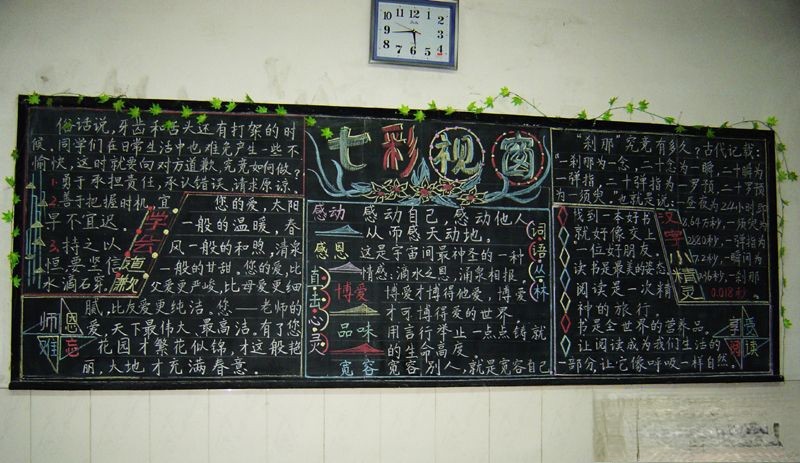 俗话说,牙齿和舌头还有打架的时
候。同学们在日常生活中也难免产生一些不
愉快,这时就要向对方道歉。究竟如何做?
1.勇于承担责任,承认错误,请求原谅。
2.善于把握时机,宜
早不宜迟。
3.持之以
恒,要坚信
水滴石穿。
学会
道歉
您的爱,太阳
一般的温暖,春
风一般的和煦,清泉
一般的甘甜。您的爱,比
父爱更严峻,比母爱更细
腻,比友爱更纯洁。您——老师的
爱,天下最伟大、最高洁,有了您
花园才繁花似锦,才这般艳
丽,大地才充满春意。
师恩
难忘
七彩视窗
词语丛林
直击心灵
感动 感动自己,感动他人
从而感天动地。
感恩 这是宇宙间最神圣的一种
情感。滴水之恩,涌泉相报
博爱 博爱才博得他爱,博爱
才可博得爱的世界
品味 用言行举止一点点铸就
的生命高度。
宽容 宽容别人,就是宽容自己
“刹那”究竟有多久?古代记载:
一刹那为一念,二十念为一瞬,二十瞬为
一弹指,二十弹指为一罗预,二十罗预
为一须臾。也就是说:一昼夜为24小时即
汉字小精灵
0.018秒。
找到一本好书
就好像交上
一位好朋友
读书是最美的姿态
阅读是一次精
神的旅行。
书是全世界的营养品。
让阅读成为我们生活的
一部分,让它像呼吸一样自然。
享受
阅读
10 11 12 1 2 3 4 5 6 7 8 9